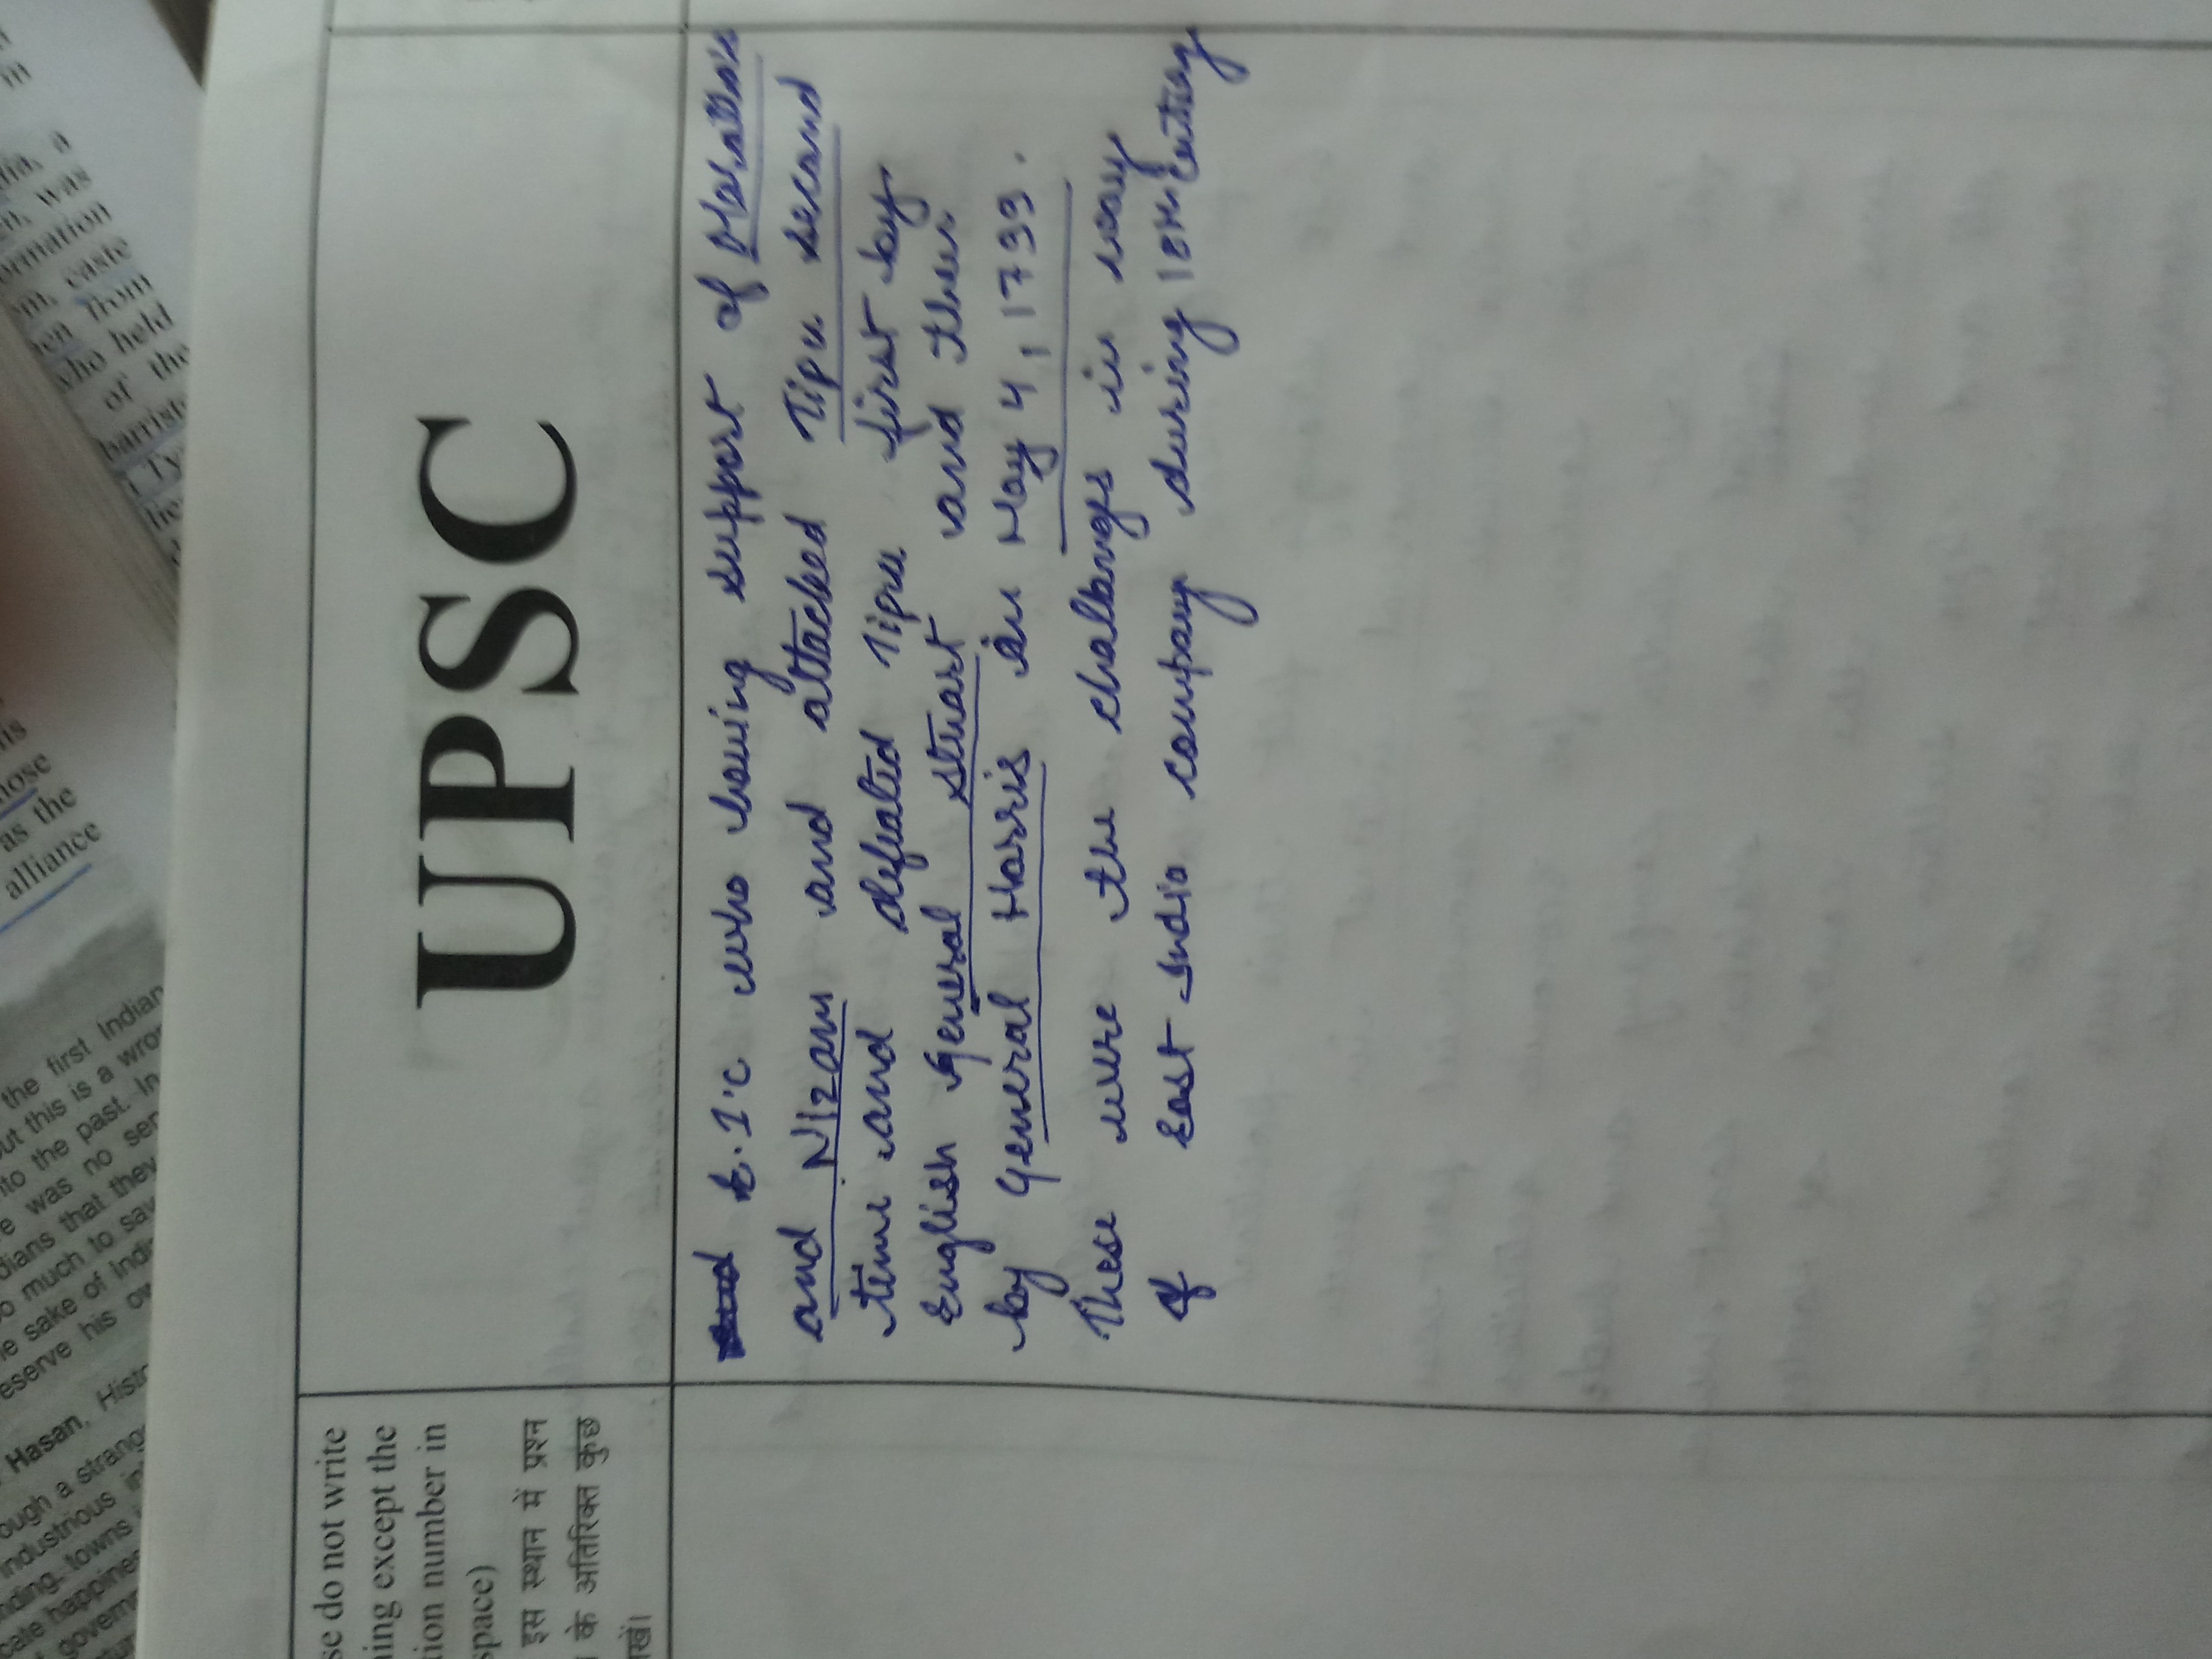 alliance
as the
nose
the first Indian
but this is a wro
to the past. In
e was no ser
dians that they
o much to sav
e sake of Indi
eserve his ow
Hasan, Histo
ough a strang
industrious in
nding, towns
cate happines
govern
in
dia, a
en, was
ormation
m, caste
en from
who held
of the
barrist
Ty
he
se do not write
ning except the
tion number in
space)
इस स्थान में प्रश्न
के अतिरिक्त कुछ
खें।
UPSC
E.I'C who having support of Maratha's
and Nizam and attacked Tipu second
time and defeated Tipu first by
English General Stuart and then
by General Harris in May 4, 1799.
These were the challanges in way
of East India company during 18th Century